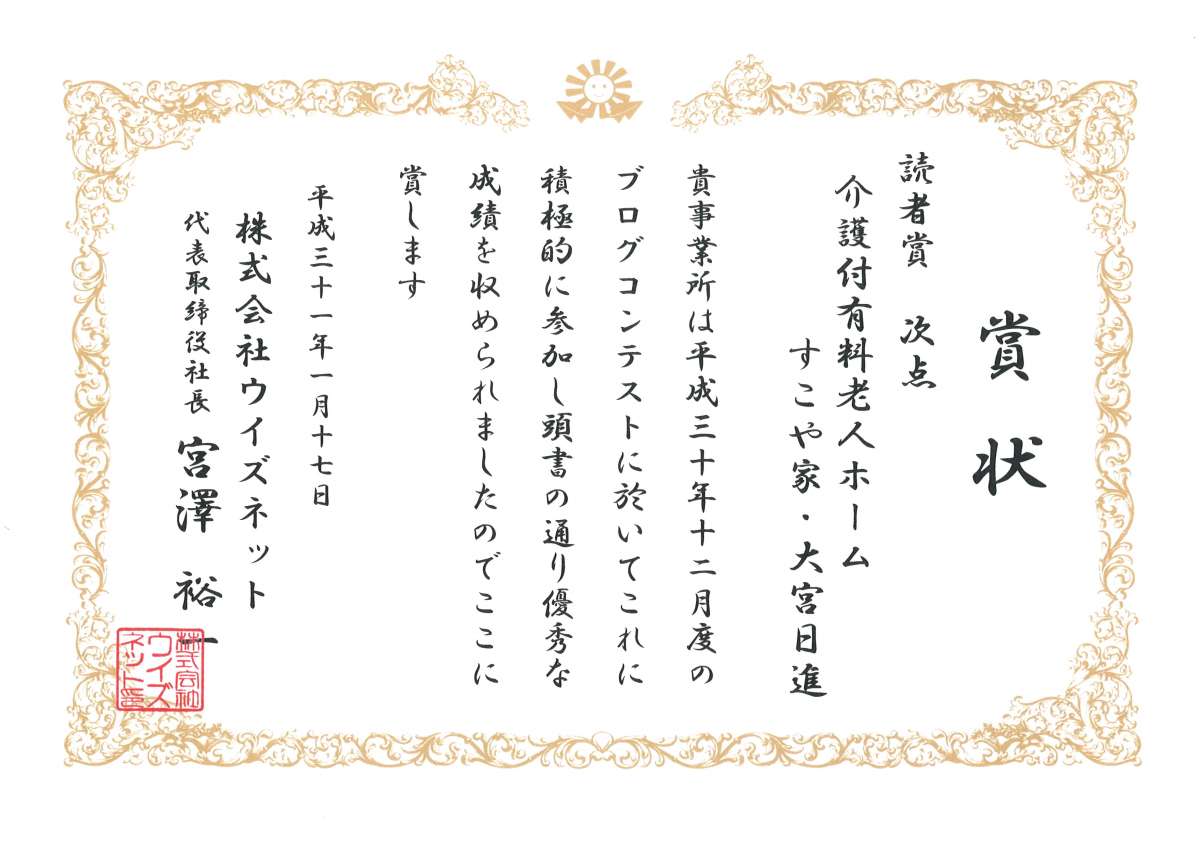 賞状
読者賞 次点
介護付有料老人ホーム
すこや家・大宮日進
貴事業所は平成三十年十二月度の
ブログコンテストに於いてこれに
積極的に参加し頭書の通り優秀な
成績を収められましたのでここに
賞します
平成三十一年一月十七日
株式会社ウイズネット
代表取締役社長 宮澤 裕一
株式会社
ウイズ
ネット印